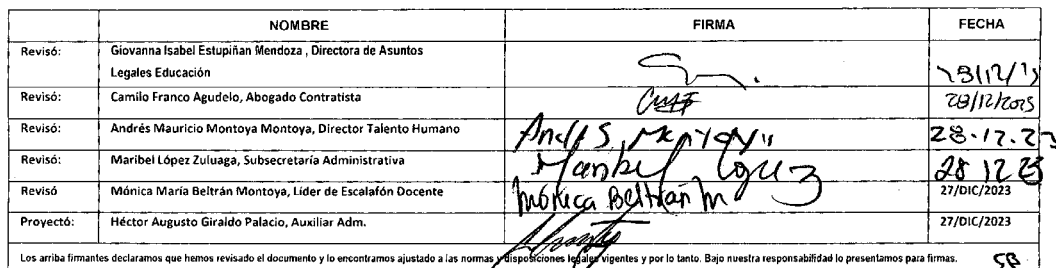 NOMBRE FIRMA FECHA
Revisó: Giovanna Isabel Estupiñan Mendoza , Directora de Asuntos
Legales Educación
Revisó: Camilo Franco Agudelo, Abogado Contratista
Revisó: Andrés Mauricio Montoya Montoya, Director Talento Humano 28.12.23
Revisó: Maribel López Zuluaga, Subsecretaría Administrativa Maribel López 28 12 23
Revisó Mónica María Beltrán Montoya, Líder de Escalafón Docente Mónica Beltrán M 27/DIC/2023
Proyectó: Héctor Augusto Giraldo Palacio, Auxiliar Adm. 27/DIC/2023
Los arriba firmantes declaramos que hemos revisado el documento y lo encontramos ajustado a las normas y disposiciones legales vigentes y por lo tanto. Bajo nuestra responsabilidad lo presentamos para firmas.